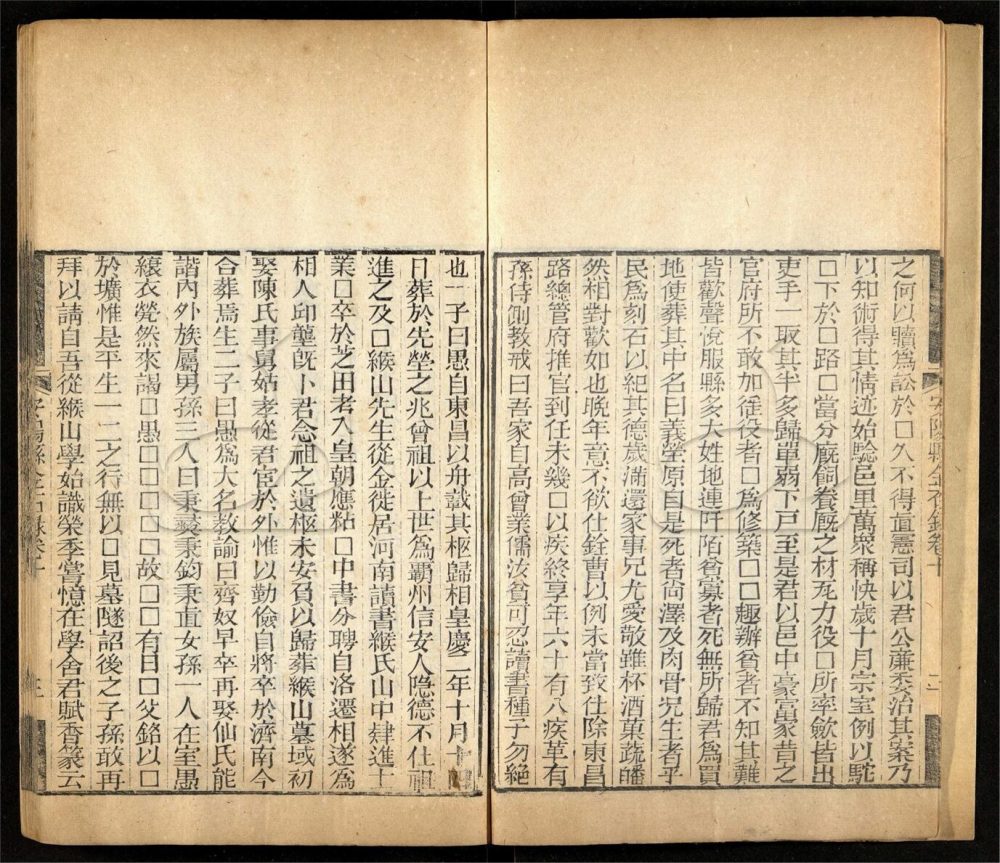 之何以贖爲訟於□久不得直憲司以君公廉委治其案乃
以知術得其情迹始駭邑里萬衆稱快歲十月宗室例以駝
□下於□路□當分廐飼養廐之材尾力役□所率歛皆出
吏手一取其半多歸單弱下戸至是君以邑中豪富家昔之
官府所不敢加徭役者□爲修築□□趣辦貧者不知其難
皆歡聲悅服縣多大姓地連阡陌貧寡者死無所歸君爲買
地使葬其中名曰義塋原自是死者尚澤及肉骨况生者乎
民爲刻石以紀其德歲滿還家事兄尤愛敬雖杯酒菓蔬皤
然相對歡如也晩年意不欲仕銓曹以例未當致仕除東昌
路總管府推官到任未幾□以疾終享年六十有八疾革有
孫侍側教戒曰吾家自高曾業儒汝貧可忍讀書種子勿絶
安陽縣金石錄卷十
二
也一子曰愚自東昌以舟載其柩歸相皇慶二年十月十
日葬於先塋之兆曾祖以上世爲霸州信安人隐德不仕祖
進之及□緱山先生從金徙居河南讀書緱氏山中肆進士
業□卒於芝田考入皇朝應粘□中書分聘自洛遷相遂爲
相人卬壟旣卜君念祖之遺柩未安負以歸葬緱山墓域初
娶陳氏事舅姑孝從君宦於外惟以勤儉自將卒於濟南今
合葬焉生二子曰愚爲大名教諭曰齊奴早卒再娶仙氏能
諧内外族屬男孫三人曰秉彝秉鈞秉直女孫一人在室愚
纕衣煢然來謁□愚□□□□□故□□□有日□攵銘以□
於壙惟是平生一二之行無以□見墓隧詔後之子孫敢再
拜以請自吾從緱山學始識榮季嘗憶在學舍君賦香篆云
安陽縣金石錄卷十
三